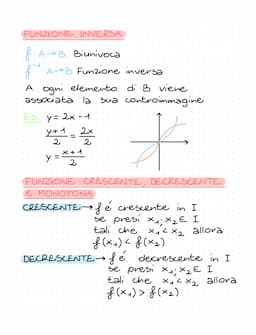 FUNZIONE INVERSA
f: A→B Biunivoca
f⁻¹: A→B Funzione inversa
A ogni elemento di B viene
associata la sua controimmagine
Es. y = 2x - 1
y+1/2 = 2x/2
y = x+1/2
FUNZIONE CRESCENTE, DECRESCENTE
e MONOTONA
CRESCENTE → f é crescente in I
se presi x₁; x₂ ∈ I
tali che x₁ < x₂ allora
f(x₁) < f(x₂)
DECRESCENTE → f é decrescente in I
se presi x₁; x₂ ∈ I
tali che x₁ < x₂ allora
f(x₁) > f(x₂)